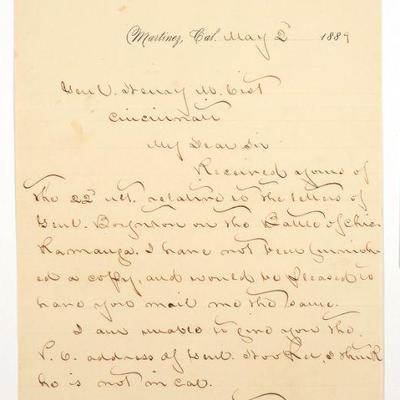 Martinez, Cal. May 2d 1889
Genl. Henry M. Cist
Cincinnati
My Dear Sir
Received yours of
the 22d ult. relative to the letters of
Genl. Boynton on the Battle of Chic-
kamauga. I have not been furnish-
ed a copy, and would be pleased to
have you mail me the same.
I am unable to give you the
P.O. address of Genl. , I think
he is not in Cal.